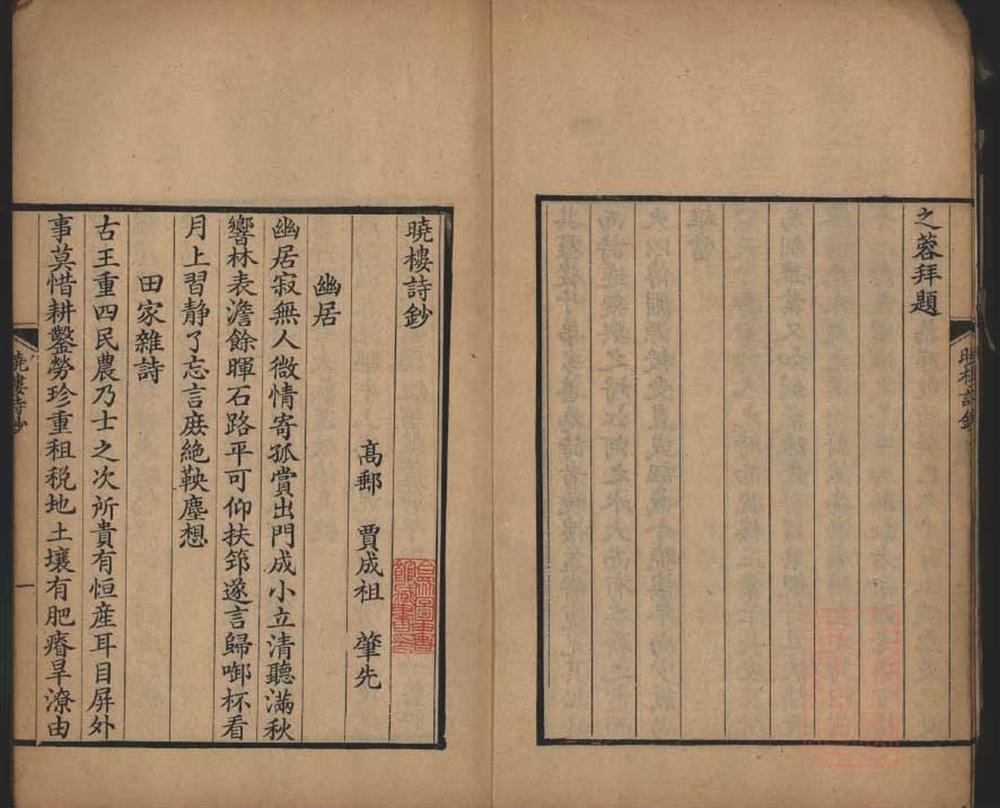 之蓉拜題
曉樓詩鈔
曉樓詩鈔
高郵 賈成祖 肇先
幽居
幽居寂無人微情寄孤賞出門成小立清聽滿秋
響林表澹餘暉石路平可仰扶筇遂言歸啣杯看
月上習靜了忘言庻絶鞅塵想
田家雜詩
古王重四民農乃士之次所貴有恒産耳目屏外
事莫惜耕鑿勞珍重租税地土壤有肥瘠旱潦由
曉樓詩鈔
一